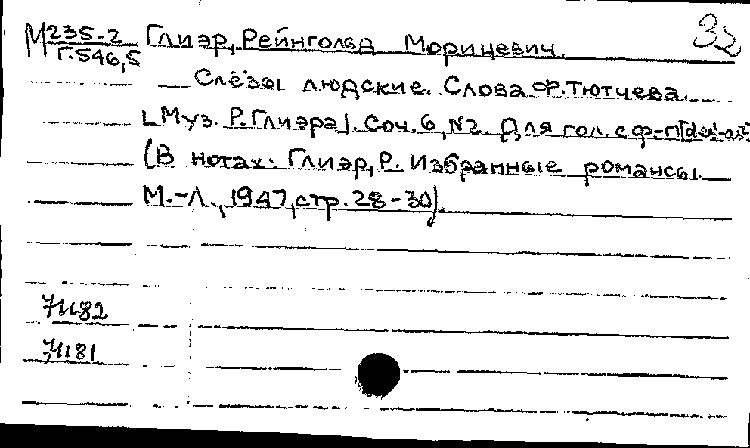 32
М 235-2 Глиэр, Рейнгольд Морицевич.
Г.546,5
Слёзы людские. Слова Ф. Тютчева.
[Муз. Р. Глиэра]. Соч. 6, №2. Для гол. с ф-п
(В нотах: Глиэр, Р. Избранные романсы.
М.-Л., 1947, стр. 28-30).
71182
71181